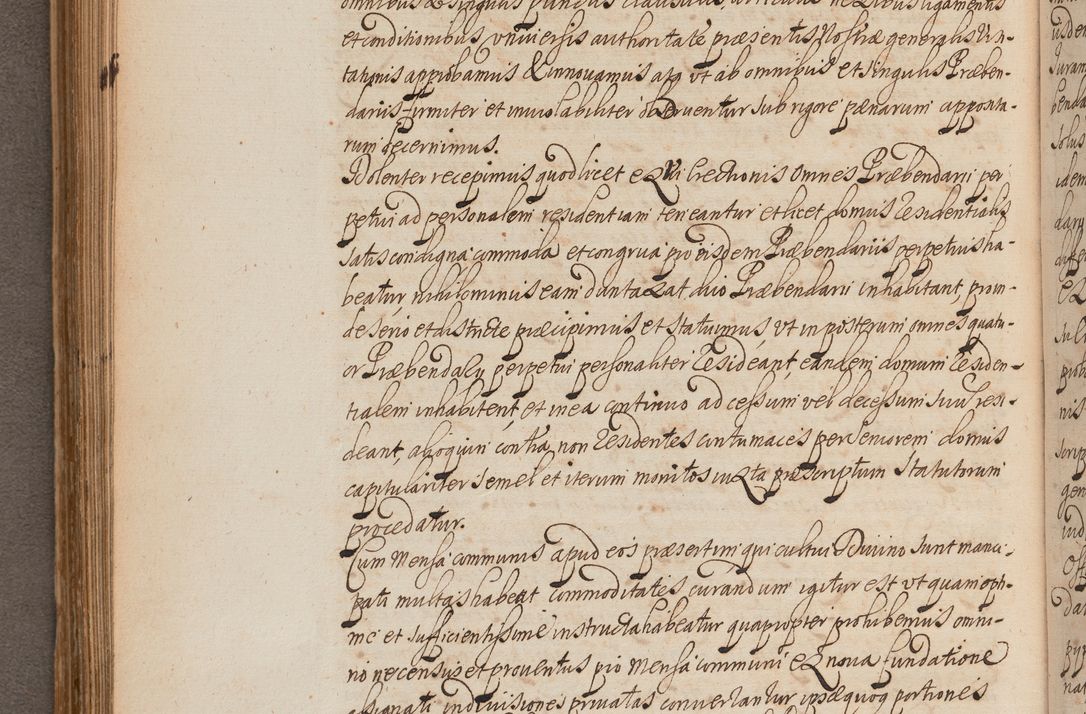 omnibus & singulis punctis clausulis, articulis nexibus ligamentis
et conditionibus vniversis authoritate præsentis Nostræ generalis Visi-
tationis approbamus & innovamus atq vt ab omnibus et singulis Præben-
darijs firmiter et inviolabiliter observentur sub rigore pænarum apposita-
rum decernimus.
Dolenter recepimus quod licet ex vi Erectionis omnes Præbendarij per
petui ad personalem residentiam teneantur et licet domus Residentialis
satis condigna commoda et congrua pro eisdem Præbendariis perpetuis ha-
beatur, nihilominus eam duntaxat duo Præbendarij inhabitant, proin-
de serio et districte præcipimus et statuimus vt in posterum omnes quatu-
or Præbendary perpetui personaliter Resideant eandem domum Residen-
tialem inhabitent, et in ea continuo ad cessum vel decessum suum resi-
deant, alioquin contra non Residentes contumaces per Seniorem domus
capitulariter semel et iterum monitos iuxta præscriptum Statutorum
procedatur.
Cum Mensa communis apud eos præsertim qui cultui Divino sunt manci-
pati multas habeat commoditates curandum igitur est vt quam opti-
me et sufficientissime instructa habeatur quapropter prohibemus omni-
no ne census et proventus pro Mensa communi ex nova fundatione
assignati in divisiones privatas convertantur ipsæquoq portiones